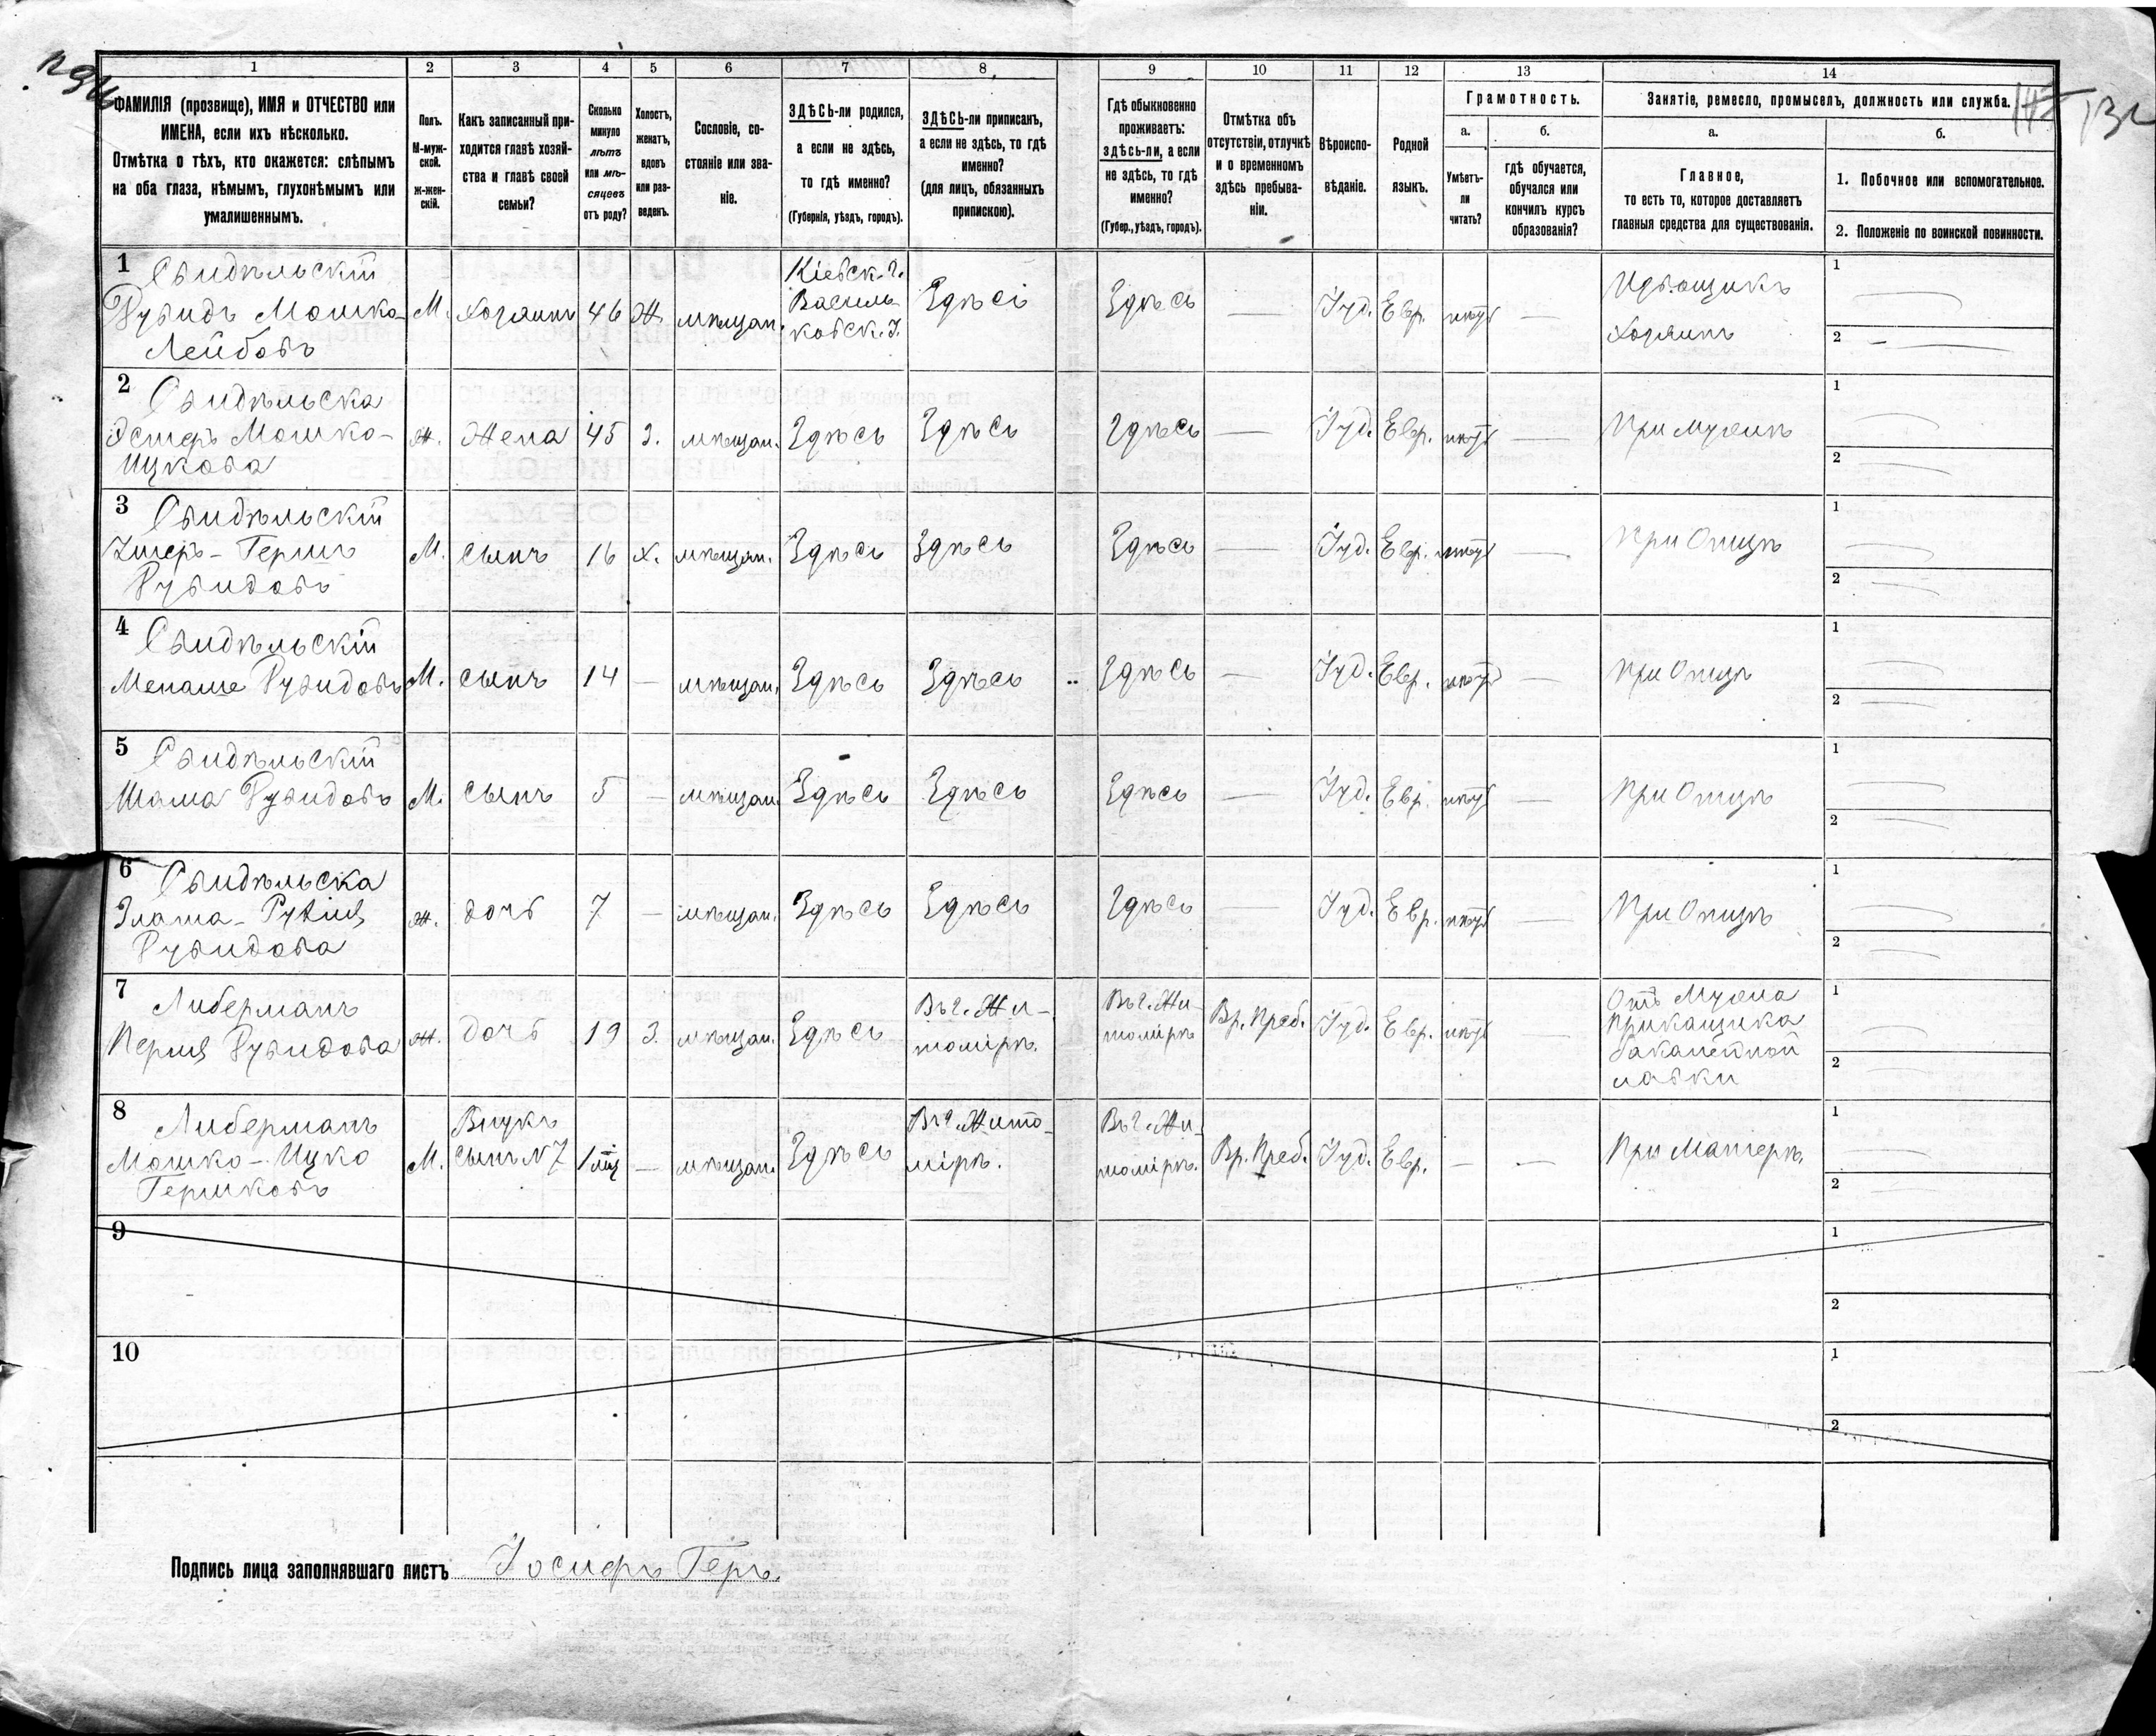 1
2
3
4
5
6
7
8
9
10
11
12
13
14
ФАМИЛІЯ (прозвище), ИМЯ и ОТЧЕСТВО или
ИМЕНА, если ихъ нѣсколько.
Отмѣтка о тѣхъ, кто окажется: слѣпымъ
на оба глаза, нѣмымъ, глухонѣмымъ или
умалишеннымъ.
Полъ.
М-муж-
ской.
ж-жен-
скій.
Какъ записанный при-
ходится главѣ хозяй-
ства и главѣ своей
семьи?
Сколько
минуло
лѣтъ
или мѣ-
сяцевъ
отъ роду?
Холостъ,
женатъ,
вдовъ
или раз-
веденъ.
Сословіе, со-
стояніе или зва-
ніе.
ЗДѢСЬ-ли родился,
а если не здѣсь,
то гдѣ именно?
(Губернія, уѣздъ, городъ).
ЗДѢСЬ-ли приписанъ,
а если не здѣсь, то гдѣ
именно?
(для лицъ, обязанныхъ
припискою).
Гдѣ обыкновенно
проживаетъ:
здѣсь-ли, а если
не здѣсь, то гдѣ
именно?
(Губер., уѣздъ, городъ).
Отмѣтка объ
отсутствіи, отлучкѣ
и о временномъ
здѣсь пребыва-
ніи.
Вѣроиспо-
вѣданіе.
Родной
языкъ.
Грамотность.
а.
Умѣетъ-
ли
читать?
б.
гдѣ обучается,
обучался или
кончилъ курсъ
образованія?
Занятіе, ремесло, промыселъ, должность или служба.
а.
Главное,
то есть то, которое доставляетъ
главныя средства для существованія.
б.
1. Побочное или вспомогательное.
2. Положеніе по воинской повинности.
1 Свидѣльскій
Рувидъ Мошко-
Лейбовъ
М. хозяинъ 46 Ж. мѣщан.
Кіевск. г.
Василь-
ковск. У.
Здѣсь Здѣсь — Іуд. Евр. нѣтъ —
Извощикъ
хозяинъ
1
2
2 Свидѣльска
Эстеръ Мошко-
Ицкова
ж. Жена 45 З. мѣщан. Здѣсь Здѣсь Здѣсь — Іуд. Евр. нѣтъ — При мужѣ
1
2
3 Свидѣльскій
Гершъ
Рувидовъ
М. сынъ 16 х. мѣщан. Здѣсь Здѣсь Здѣсь — Іуд. Евр. нѣтъ — При Отцѣ
1
2
4 Свидѣльскій
Менаше Рувидовъ
М. сынъ 14 — мѣщан. Здѣсь Здѣсь Здѣсь — Іуд. Евр. нѣтъ — При Отцѣ
1
2
5 Свидѣльскій
Шама Рувидовъ
М. сынъ 5 — мѣщан. Здѣсь Здѣсь Здѣсь — Іуд. Евр. нѣтъ — При Отцѣ
1
2
6 Свидѣльска
Рувидова
ж. дочь 7 — мѣщан. Здѣсь Здѣсь Здѣсь — Іуд. Евр. нѣтъ — При Отцѣ
1
2
7 Либерманъ
Перля Рувидова
ж. дочь 19 З. мѣщан. Здѣсь
Въ г. Жи-
томірѣ.
Въ г. Жи-
томірѣ
Вр. Преб. Іуд. Евр. нѣтъ
Отъ Мужа
Прикащика
бакалейной
лавки
1
2
8 Либерманъ
Мошко-Ицко
Гершковъ
М.
Внукъ
Сынъ N 7
1 мц — мѣщан. Здѣсь
Въ г. Жито-
мірѣ.
Въ г. Жи-
томірѣ.
Вр. Преб. Іуд. Евр. — — При Матерѣ.
1
2
9
1
2
10
1
2
Подпись лица заполнявшаго листъ Іосифъ Геръ.